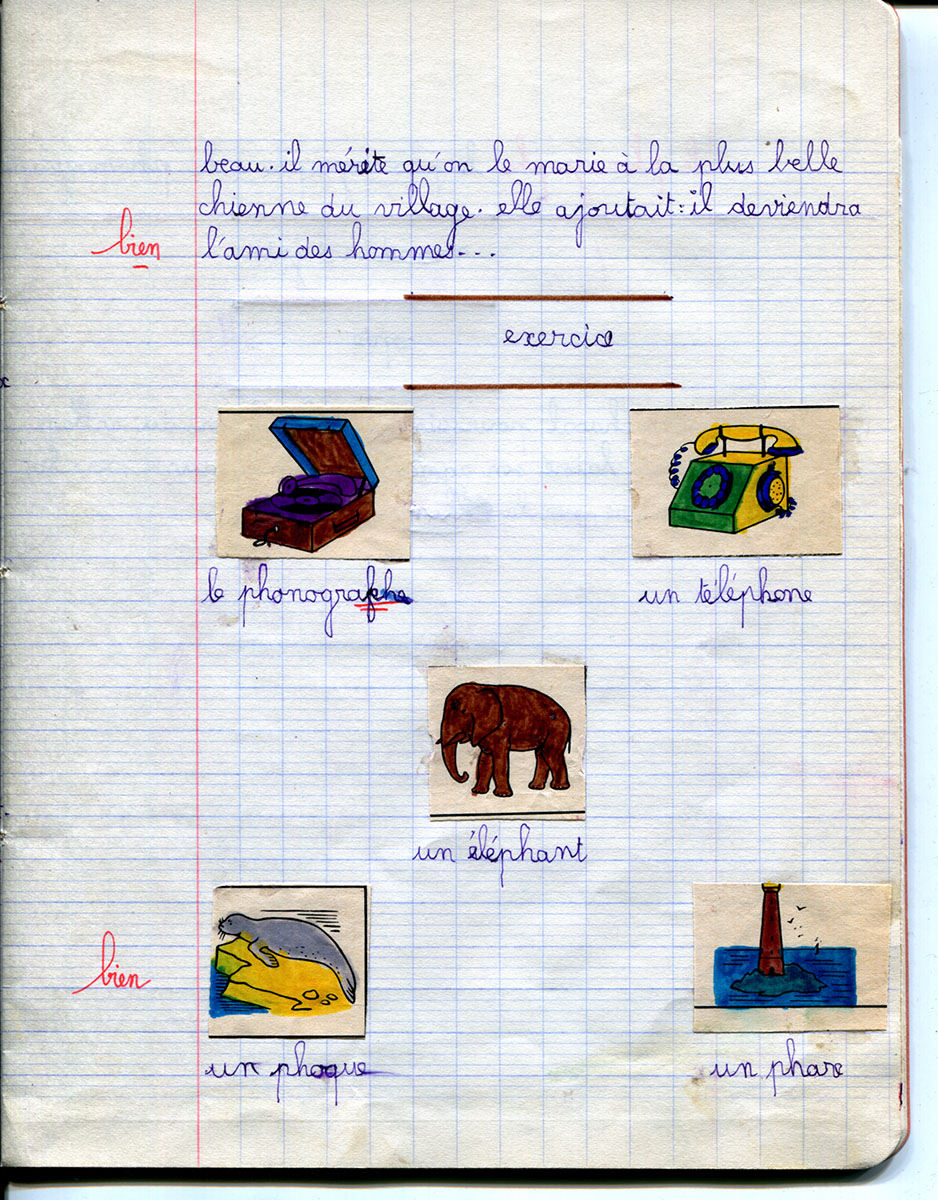 beau. il mérite qu'on le marie à la plus belle
chienne du village. elle ajoutait: il deviendra
bien
l'ami des hommes...
exercice
le phonographe
un téléphone
un éléphant
bien
un phoque
un phare